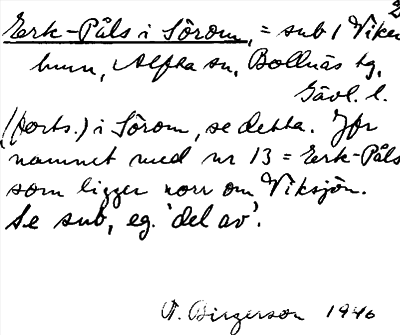 2
Eerk-Påls i Sörom, = sub 1 Viken
hmn, Alfta sn, Bollnäs tg,
Gävl. l.
(forts.) i Sörom, se detta. Jfr
namnet med nr 13 = Eerk-Påls
som ligger norr om Viksjön.
Se sub, eg. 'del av'.
A. Birgerson 1946